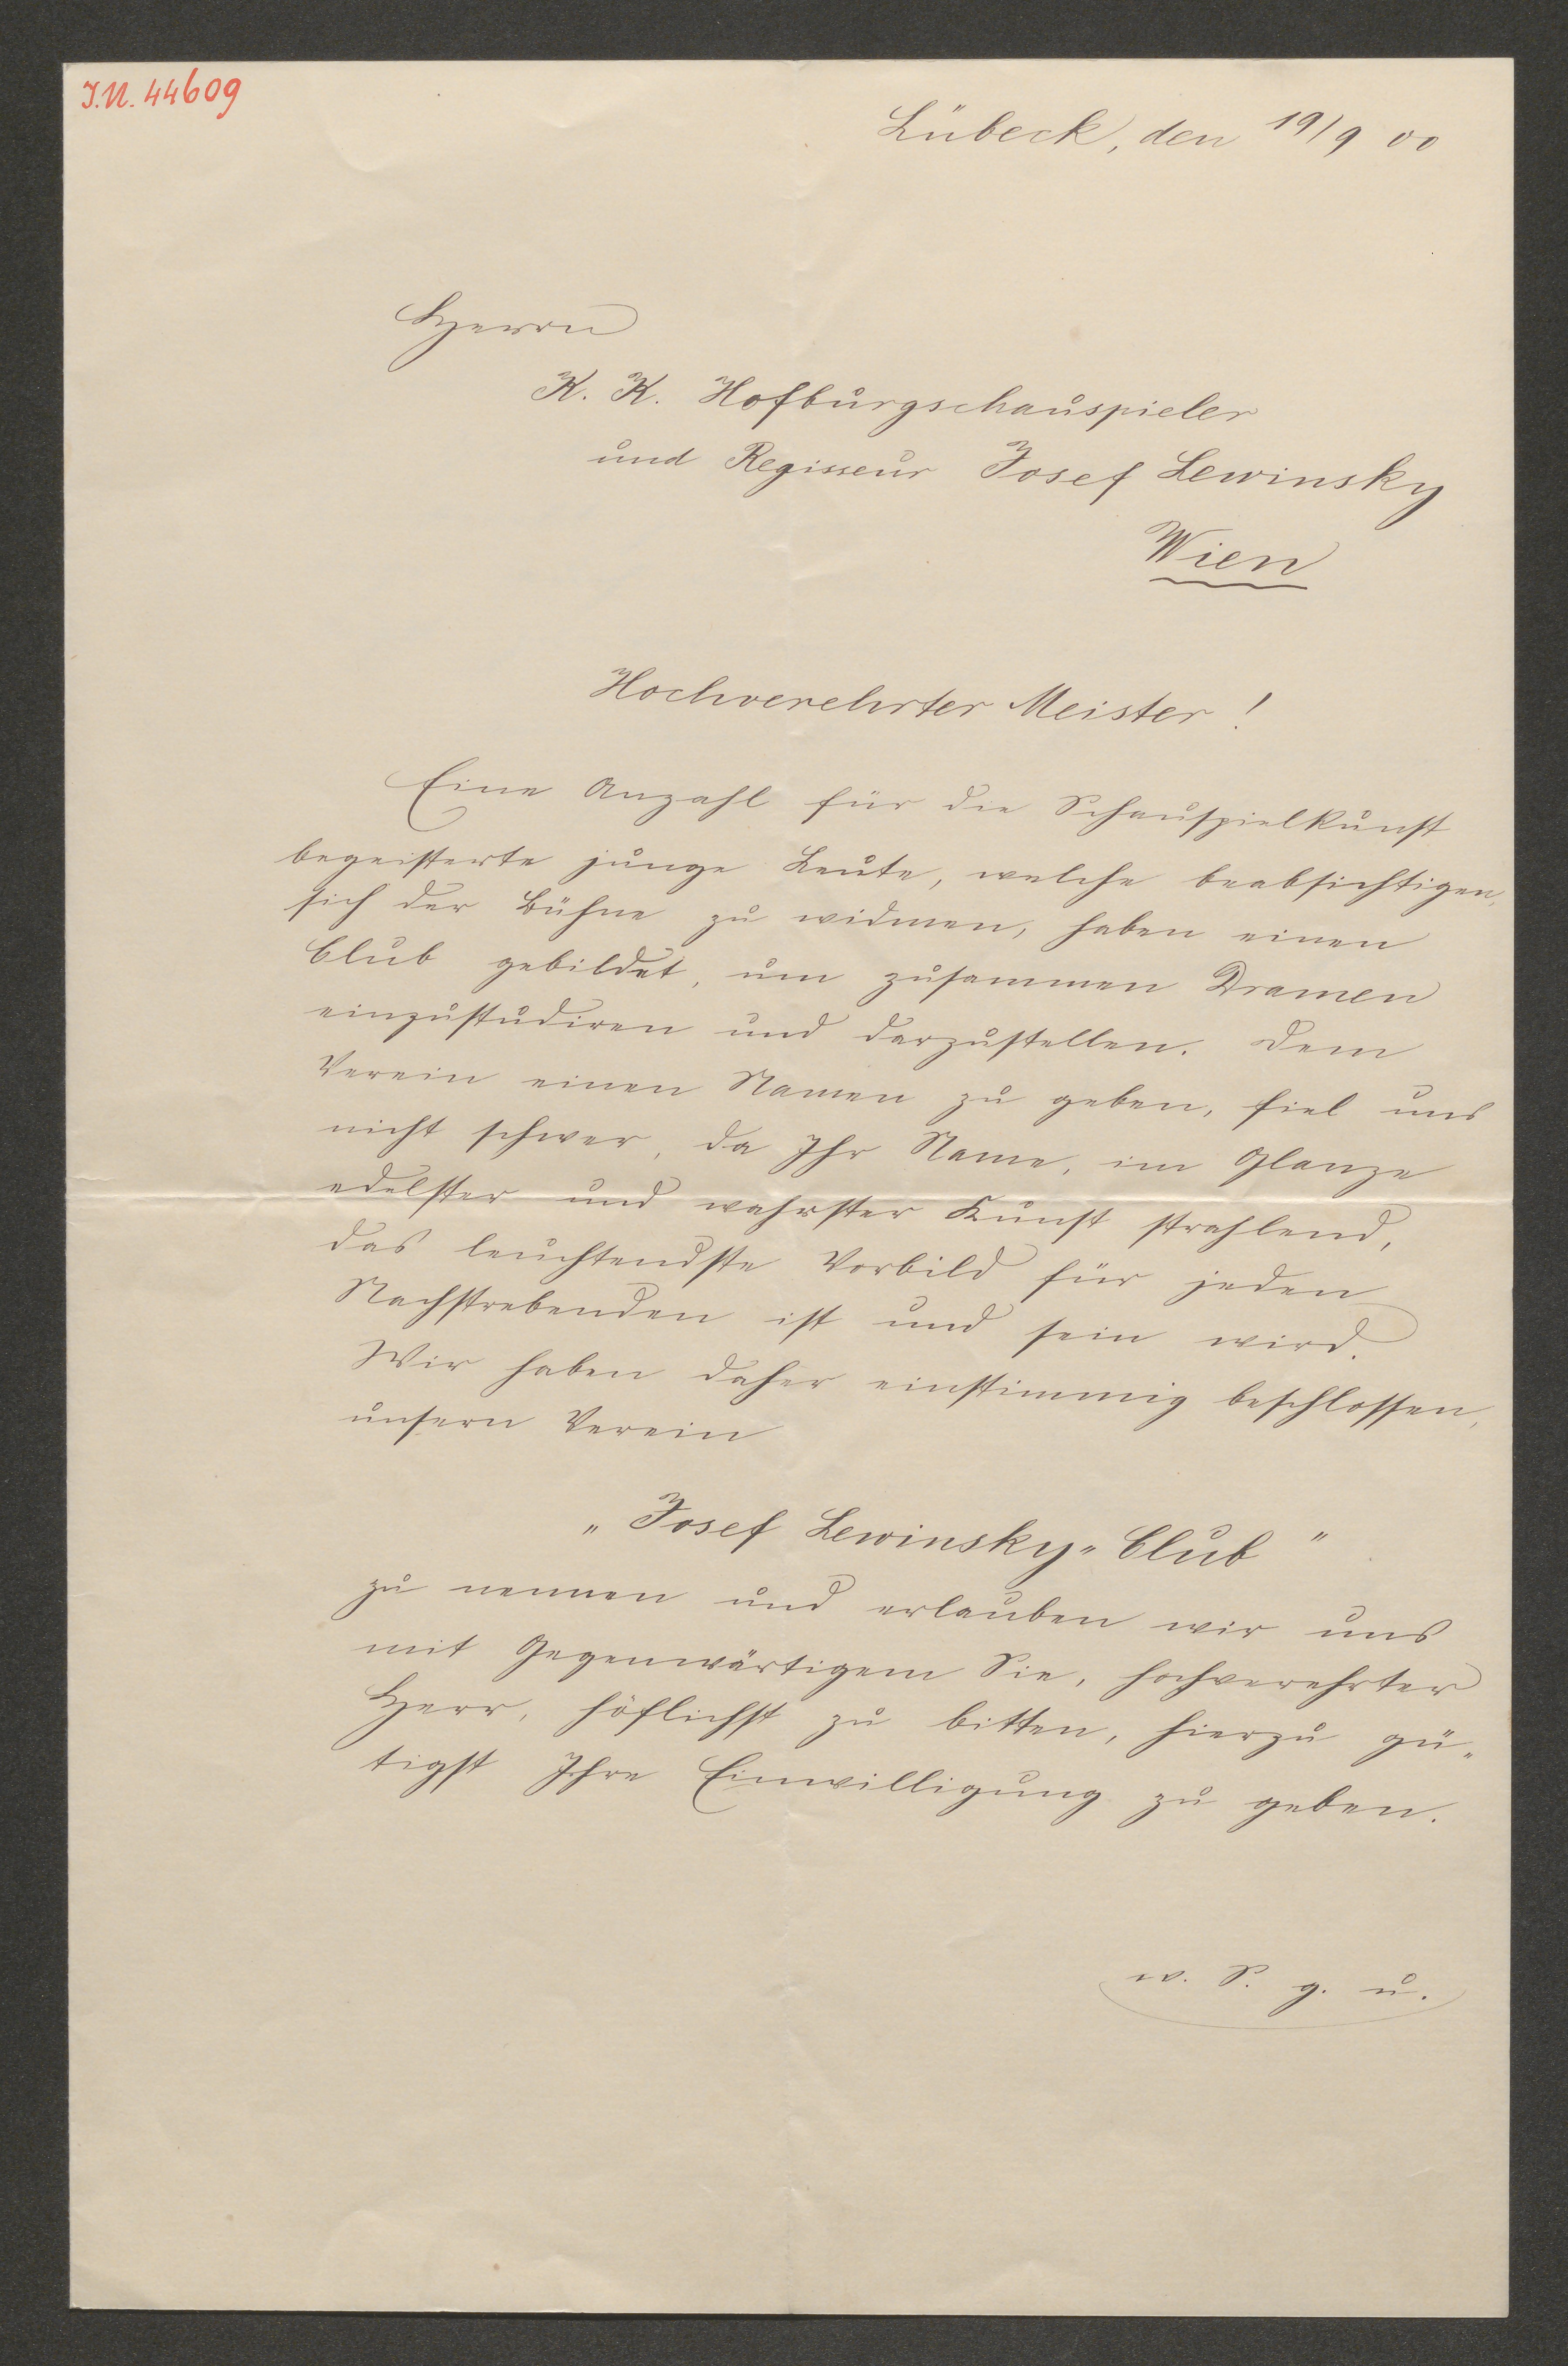 J.N. 44609
Lübeck, den 19/9 00
Herrn
K. K. Hofburgschauspieler
und Regisseur Josef Lewinsky
Wien
Hochverehrter Meister!
Eine Anzahl für die Schauspielkunst
begeisterte junge Leute, welche beabsichtigen,
sich der Bühne zu widmen, haben einen
Club gebildet, um zusammen Dramen
einzustudiren und darzustellen. Dem
Verein einen Namen zu geben, fiel uns
nicht schwer, da Ihr Name, im Glanze
edelster und wahrster Kunst strahlend,
das leuchtendste Vorbild für jeden
Nachstrebenden ist und sein wird.
Wir haben daher einstimmig beschlossen,
unsern Verein
„Josef Lewinsky-Club"
zu nennen und erlauben wir uns
mit Gegenwärtigem Sie, hochverehrter
Herr, höflichst zu bitten, hierzu gü-
tigst Ihre Einwilligung zu geben.
w. S. g. u.